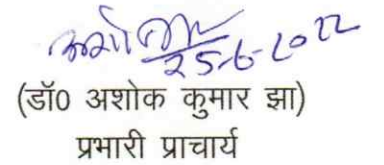 25-6-2022
(डॉ0 अशोक कुमार झा)
प्रभारी प्राचार्य